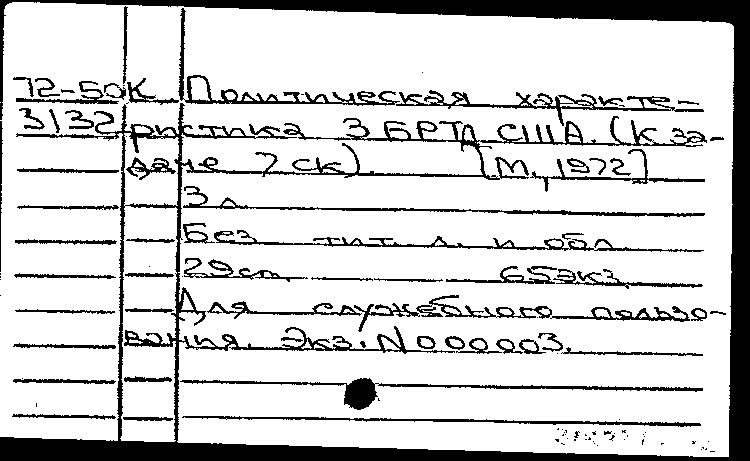 72-50К Политическая характе-
3132 ристика 3 БРТД США. (К за-
даче 7 СК). [М., 1972]
3 л.
Без тит. л. и обл.
29см. 65экз.
Для служебного пользо-
вания. Экз. N000003.